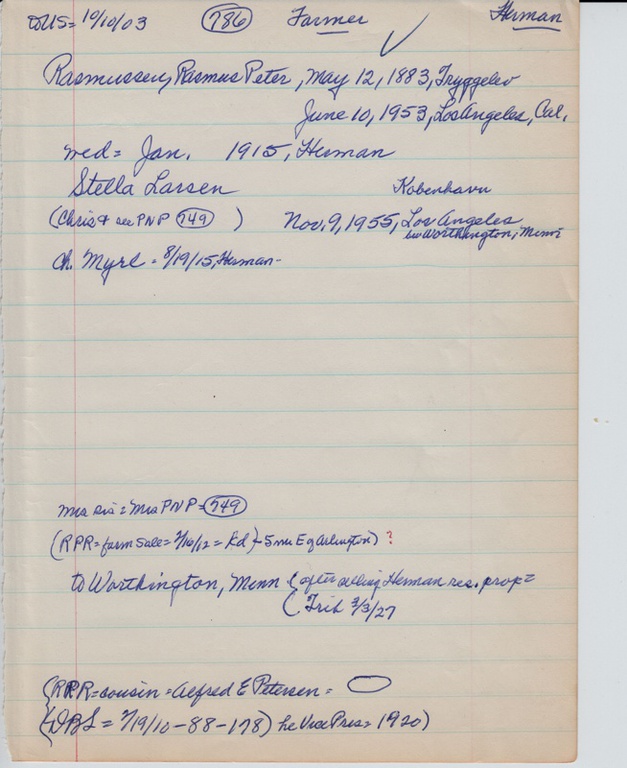 to US = 10/10/03 (786) Farmer Herman
Rasmussen, Rasmus Peter, May 12, 1883, Tryggelev
June 10, 1953, Los Angeles, Cal.
wed = Jan. 1915, Herman
Stella Larsen Kobenhavn
(Chris + see PNP (749) ) Nov. 9, 1955, Los Angeles
bur Worthington, Minn
Ch. Myrl = 8/19/15, Herman -
Mrs sis = Mrs PNP = (749)
(RPR = farm sale = 2/16/12 = Kd) - 5 mi E of Arlington) ?
to Worthington, Minn (after selling Herman res. prop =
( Trib 3/3/27
(RPR = cousin = Alfred E Petersen =
(DBL = 7/19/10 - 88 - 178) he Vice Pres = 1920)